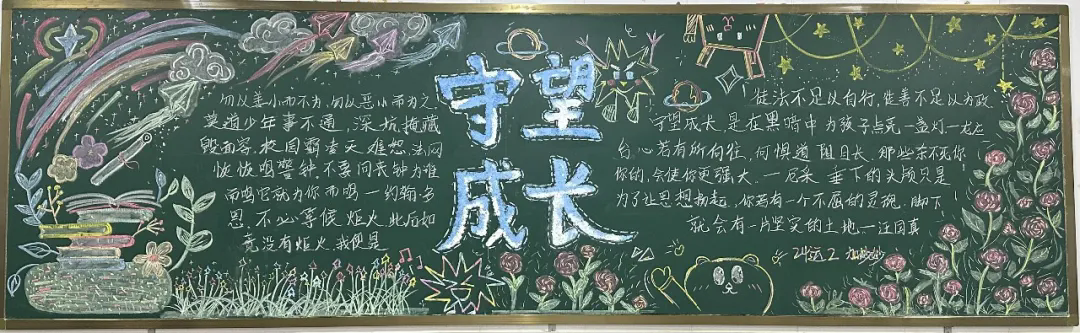 勿以善小而不为,勿以恶小而为之
莫道少年事不通,深坑掩藏
毁面容.校园霸凌天难恕,法网
恢恢鸣警钟,不要问长钟为谁
而鸣它就为你而鸣一约翰·多
恩.不必等候炬火.此后如
竟没有炬火.我便是
守望
成长
徒法不足以自行,徒善不足以为政
守望成长,是在黑暗中为孩子点亮一盏灯一龙应
台心若有所向往,何惧道阻且长.那些杀不死你
你的,会使你更强大.一尼采 垂下的头颅只是
为了让思想扬起,你若有一个不屈的灵魂.脚下
就会有一片坚实的土地一汪国真